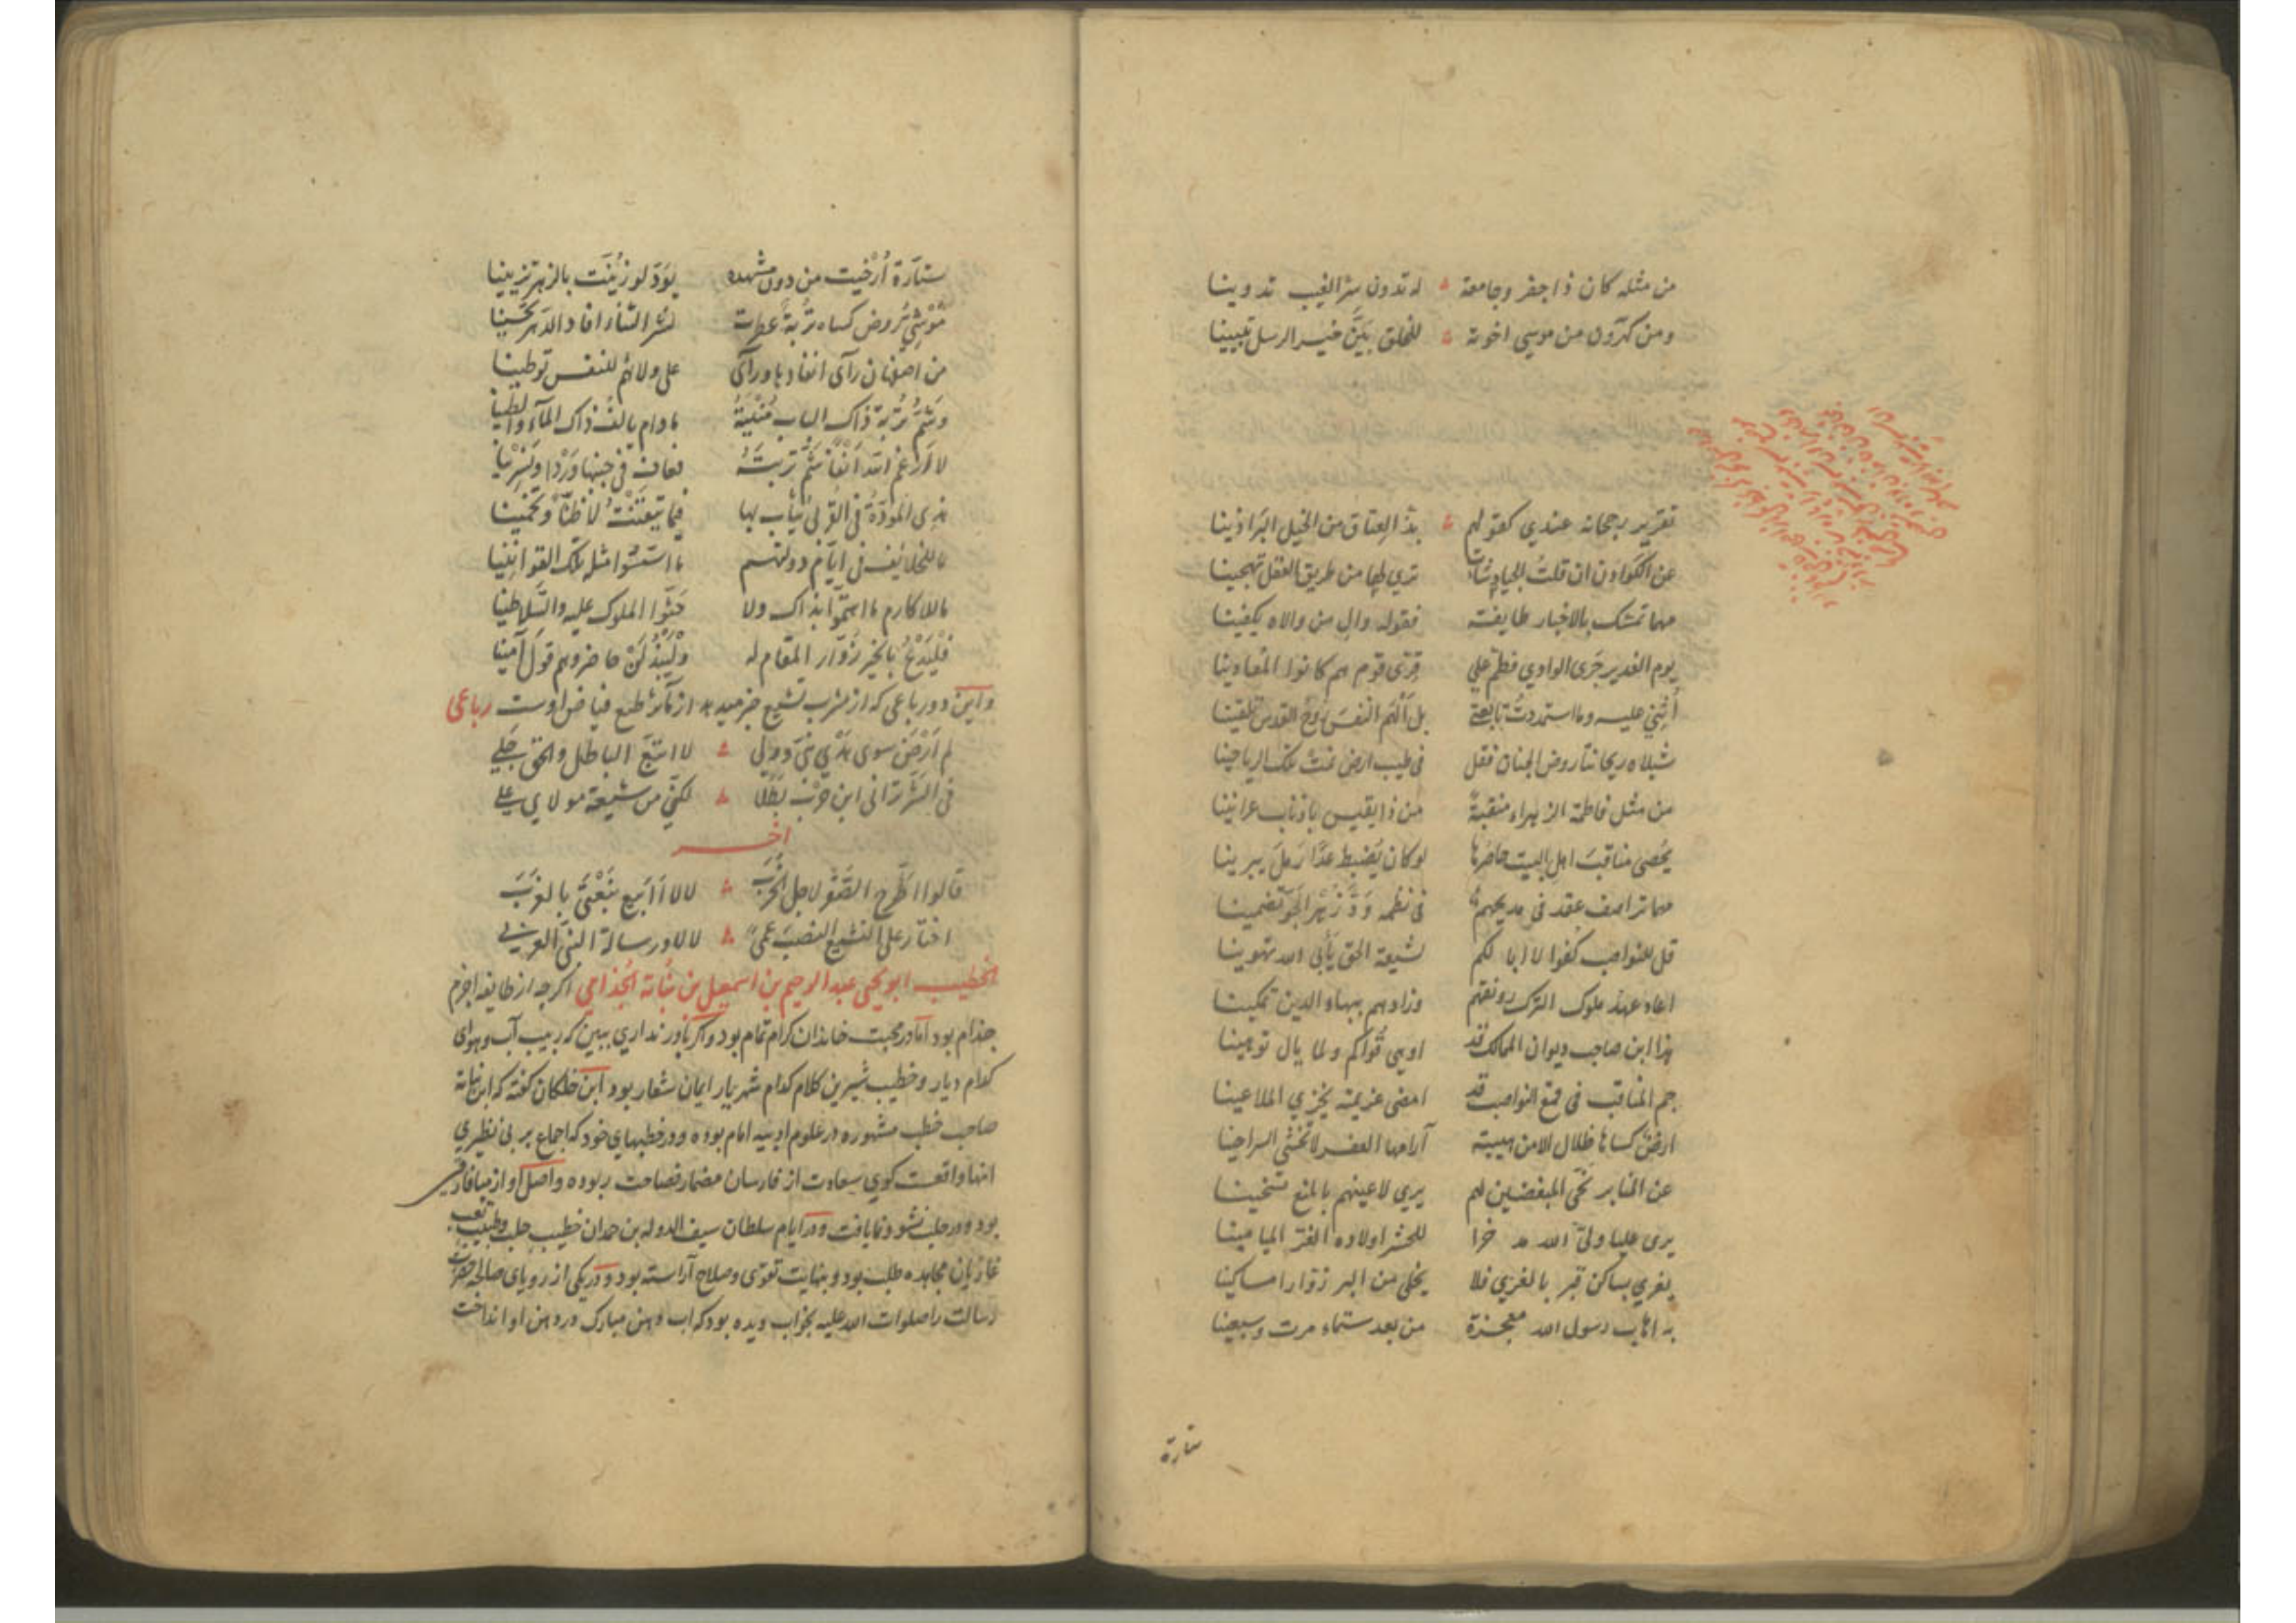 من مثله كان ذا جفر وجامعة له تدون سر الغيب تدوينا
ومن كهرون من موسى اخوته للخلق بيّن خير الرسل تبيينا
تقرير رجحانه عندي كقولهم بذ العتاق من الخيل البراذينا
عن الكوادن ان قلت الجياد شأت ترى لها من طريق العقل تهجينا
مهما تمسك بالاخبار طايفة فقوله وال من والاه يكفينا
يوم الغدير جرى الوادي فطم على قرى قوم هم كانوا المعادينا
أثني عليه وما استمددت تابعة بل ألهم النفس روح القدس تلقينا
شبلاه ريحانتا روض الجنان فقل في طيب ارض نمت تلك الرياحينا
من مثل فاطمة الزهراء منقبة من ذا يقيس باذناب عرانينا
يحصى مناقب اهل البيت حاصرها لو كان يضبط عدّا رمل يبرينا
مهما ترادف عقد في مديحهم في نظمه ودّ زهر الجو تضمينا
قل للنواصب كفوا لا ابا لكم لشيعة الحق يأبى الله تهوينا
اعاد عهد ملوك الترك رونقهم وزادهم ببهاء الدين تمكينا
هذا ابن صاحب ديوان الممالك قد اوهى قواكم ولما يال توهينا
جم المناقب في قمع النواصب قد امضى عزيمته يخزي الملاعينا
ارض كساها ظلال الامن هيبته آرامها العفر لا تخشى السراحينا
عن المنابر نحّى المبغضين لهم يرى لاعينهم بالمنع تسخينا
يرى عليا ولي الله مدخرا للحشر اولاده الغر الميامينا
يغري بساكن قبر بالغري فلا يخلى من البر زوارا مساكينا
به اهاب رسول الله معجزة من بعد ستماء مرت وسبعينا
ستارة
ستارة أرخيت من دون مشهده يودّ لو زينت بالزهر تزيينا
موشي روض كساه تربة عطرت نشر الثناء افاد الدهر تحسينا
من اصفهان رأى انفادها ورأى على ولائهم للنفس توطينا
وشم تربة ذاك الباب منيته ما دام يالف ذاك الماء والطينا
لا ارغم الله انفا شم تربته فعاف في جنبها وردا ونسرينا
هذى المودة في القربى يثاب بها فما تيقنت لا ظنّا وتخمينا
ما للخلائف في ايام دولتهم ما استنوا مثل تلك القوانينا
ما للاكارم ما اهتموا بذاك ولا حثّوا الملوك عليه والسلاطينا
فليدع بالخير زوّار المقام له وليبذلن حاضروهم قول آمينا
واين دو رباعى كه از مشرب تشيع خبر ميدهد از مآثر طبع فياض اوست رباعى
لم ارض سوى هدي نبيّ وولي لا اتبع الباطل والحق جلي
في الشر ترانى ابن حرب بطلا لكنّي من شيعة مولاي علي
اخر
قالوا اطّرح الصفو لاجل لا لا اابيع نبعتي بالغرب
اختار على التشيع النصب عمى لا لا ورسالة النبي العربي
الخطيب ابو يحيى عبد الرحيم بن اسمعيل بن نباتة الجذامي اكر چه از طايفه اجزم
جذام بود اما در محبت خاندان كرام تمام بود واكر باور ندارى ببين كه ربيب آب وهواى
كدام ديار وخطيب شيرين كلام كدام شهريار ايمان شعار بود ابن خلكان كفته كه ابن نباته
صاحب خطب مشهوره در علوم ادبيه امام بوده ودر خطبهاى خود كه اجماع بر بى نظيرى
انها واقعست كوى سعادت از فارسان مضمار فصاحت ربوده واصل او از ميافارقين
بود ودر حلب نشو ونما يافت ودر ايام سلطان سيف الدوله بن حمدان خطيب حلب
غازيان مجاهده طلب بود وبغايت تقوى وصلاح آراسته بود ودر يكى از روياى صالحه حضرت
رسالت را صلوات الله عليه بخواب ديده بود كه اب دهن مبارك در دهن او انداخت